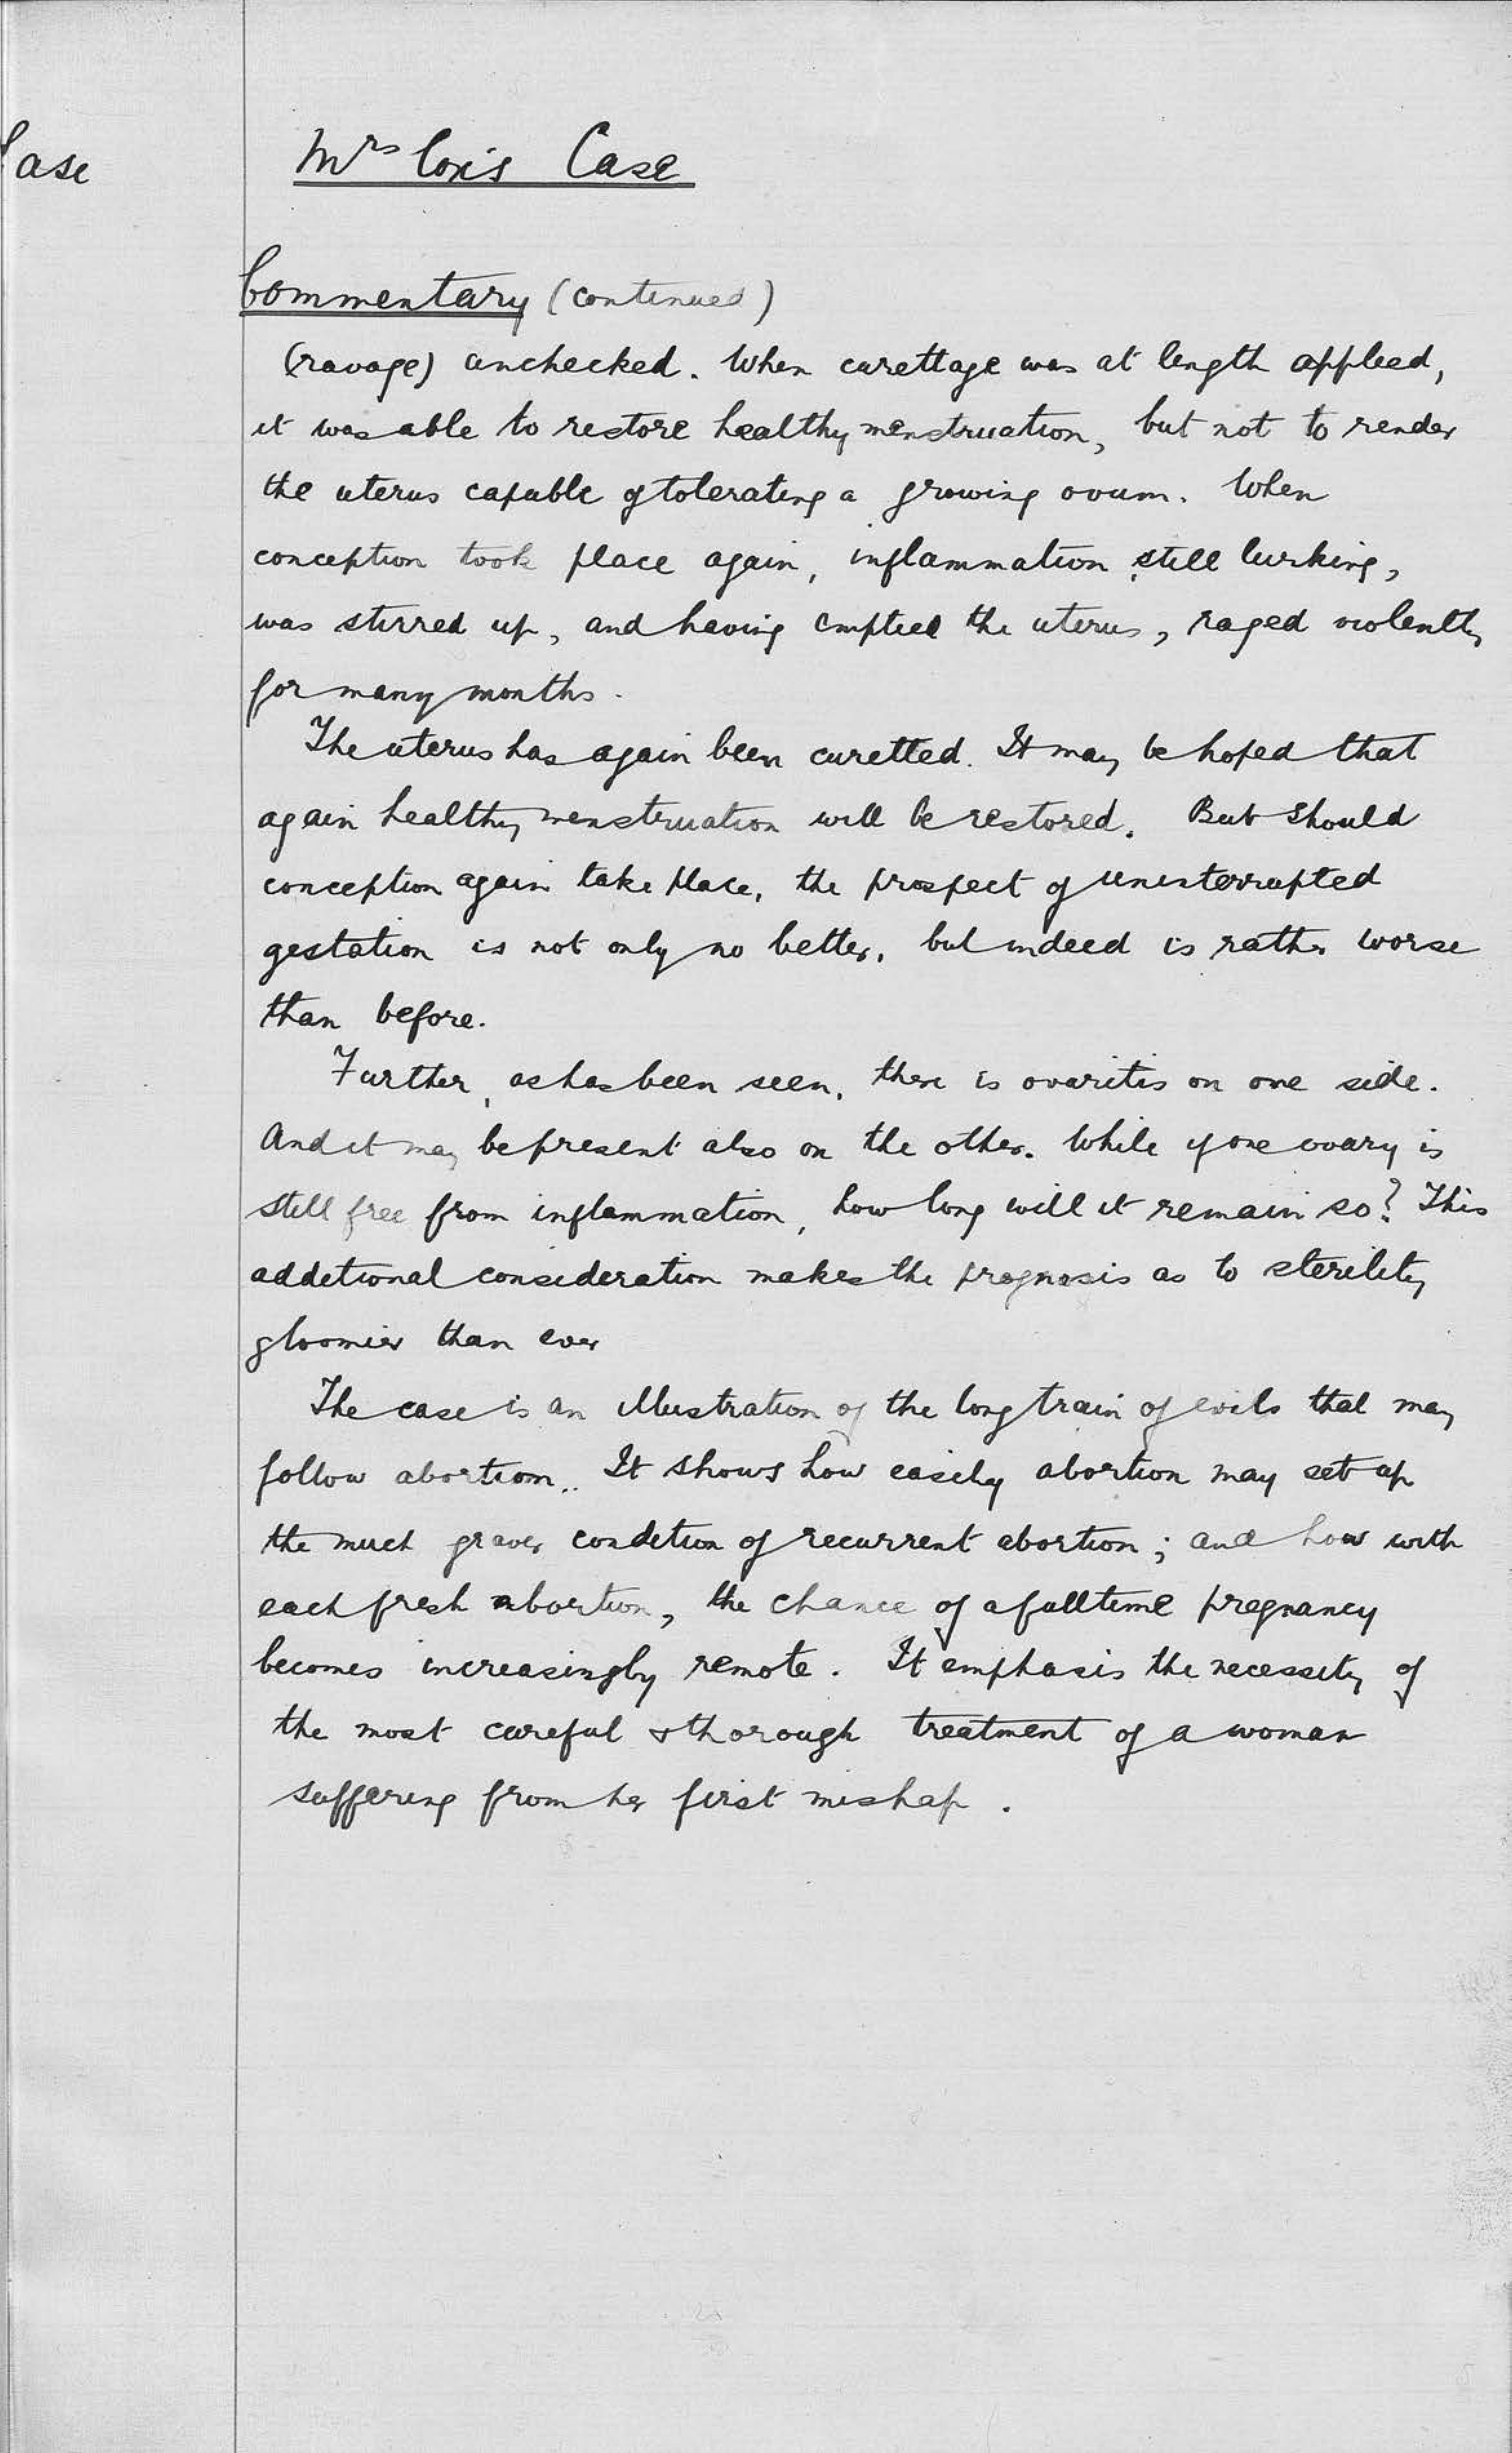 Case
Mrs Cox's Case
Commentary (continued)
(ravage) unchecked. When curettage was at length applied,
it was able to restore healthy menstruation, but not to render
the uterus capable of tolerating a growing ovum. When
conception took place again, inflammation still lurking,
was stirred up, and having emptied the uterus, raged violently
for many months.
The uterus has again been curetted. It may be hoped that
again healthy menstruation will be restored. But should
conception again take place, the prospect of uninterrupted
gestation is not only no better, but indeed is rather worse
than before.
Further, as has been seen, there is ovaritis on one side.
And it may be present also on the other. While if one ovary is
still free from inflammation, how long will it remain so? This
additional consideration makes the prognosis as to sterility
gloomier than ever
The case is an illustration of the long train of evils that may
follow abortion.. It shows how easily abortion may set up
the much graver condition of recurrent abortion; and how with
each fresh abortion, the chance of a fulltime pregnancy
becomes increasingly remote. It emphasis the necessity of
the most careful & thorough treatment of a woman
suffering from her first mishap.